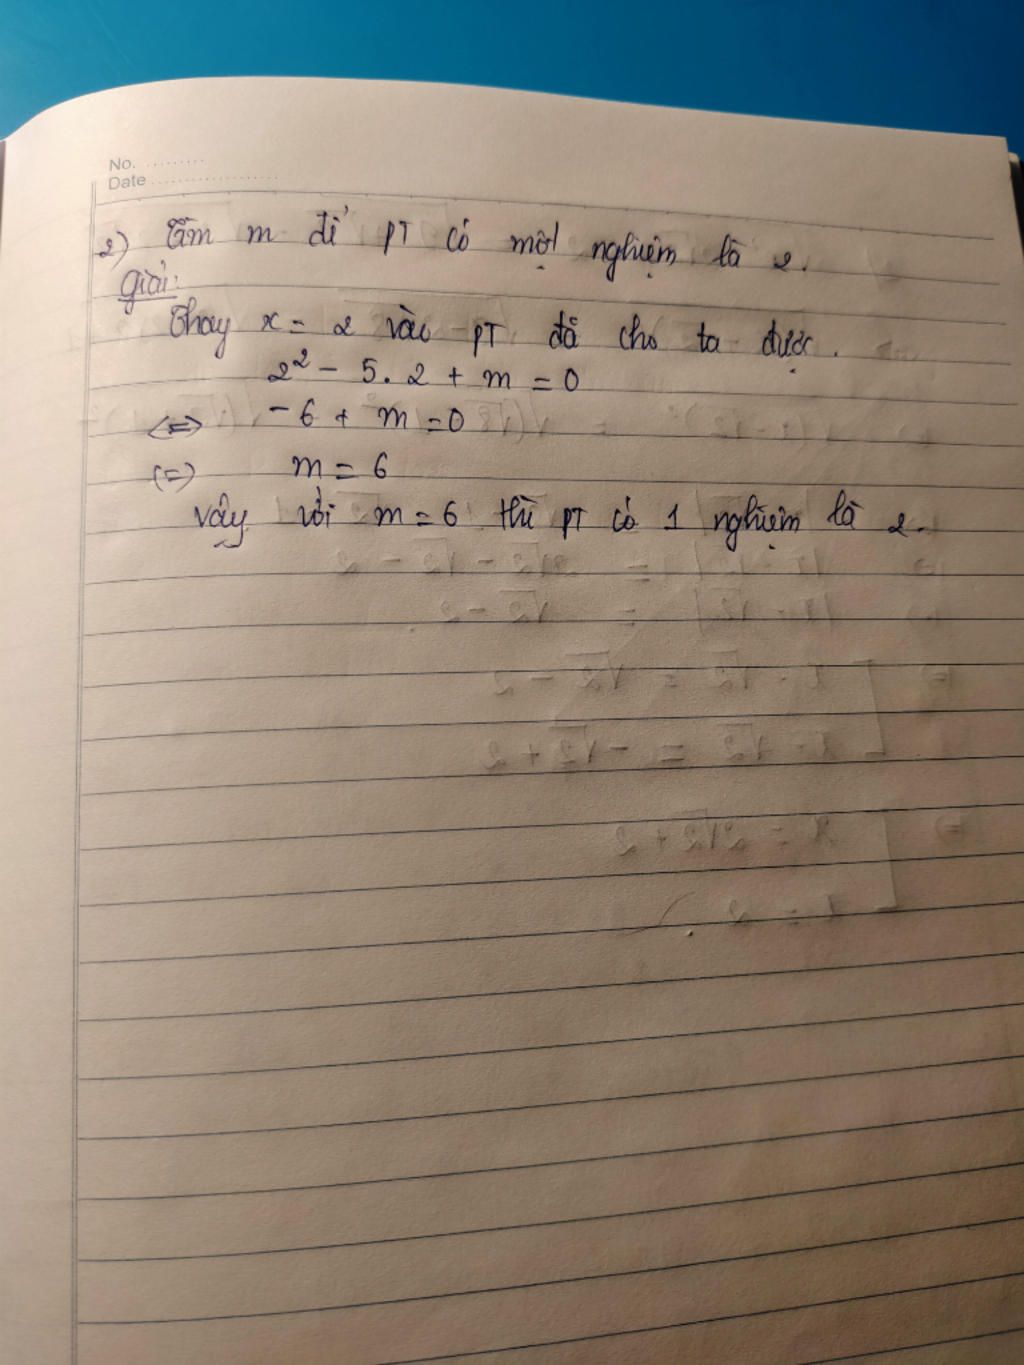 No. .........
Date ..................
2) Tìm m để PT có một nghiệm là 2.
Giải:
Thay x = 2 vào PT đã cho ta được.
2² - 5.2 + m = 0
<=> -6 + m = 0
(=) m = 6
Vậy với m = 6 thì PT có 1 nghiệm là 2.